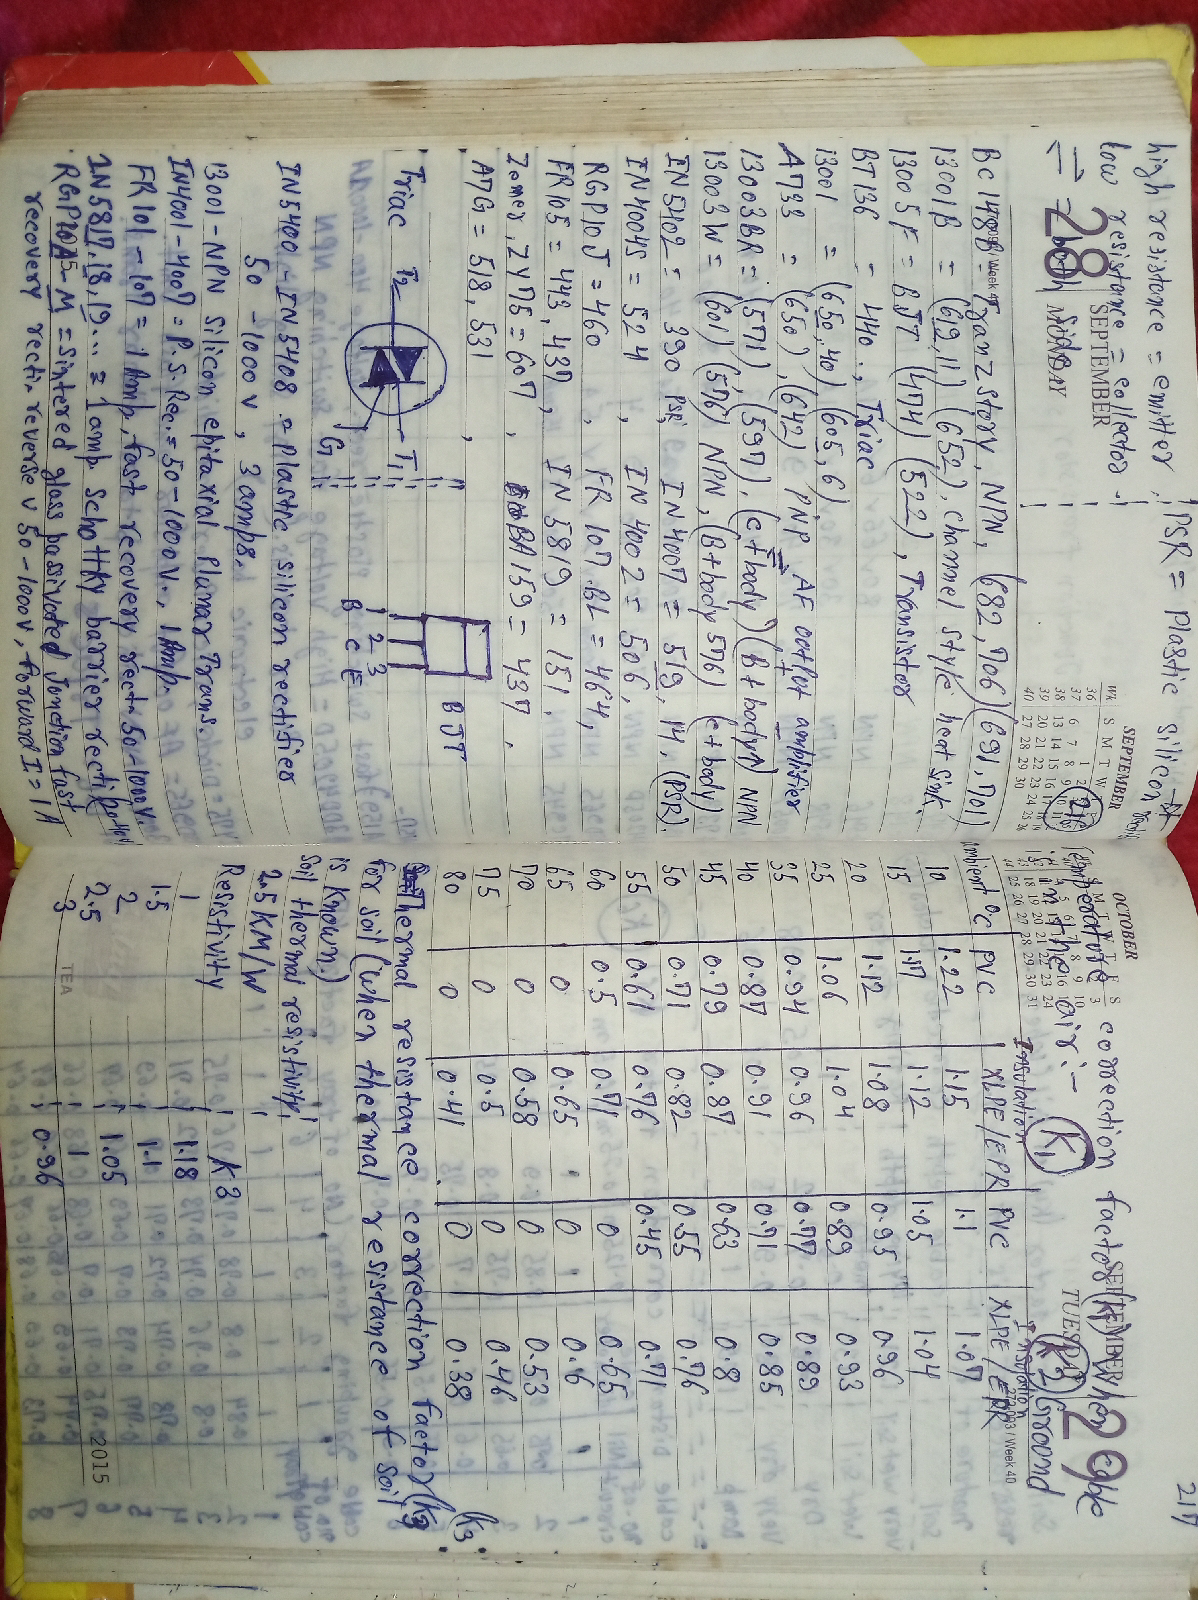 high resistance = emitter
low resistance = collector
⇒ both side
28 SEPTEMBER
MONDAY
PSR = Plastic silicon
SEPTEMBER
216
BC148B = Tranzstor, NPN, (682,706)(691,701)
13001B = (612,11)(652), channel style heat sink.
13005F = BJT (474)(522), Transistor
BT136 = 440., Triac
13001 = (650,40)(605,6)
A733 = (650),(642) PNP AF output amplifier
13003BR = (571),(597), (c+body)(B+body) NPN
13003W = (601)(576) NPN, (B+body 576) (c+body)
IN5402 = 390 PSR, IN4007 = 519, 14, (PSR).
IN4004S = 524, IN4002 = 506,
RGP10J = 460, FR107.BL = 464,
FR105 = 443, 437, IN5819 = 151,
Zener, ZY75 = 607, BA159 = 437,
A7G = 518, 531,
Triac T2 T1 G
1 2 3
B C E
BJT
IN5400 - IN5408 = plastic silicon rectifier
50 - 1000 V, 3 amps.
13001 - NPN Silicon epitaxial Planar Trans.
IN4001 - 4007 = P.S. Rec. = 50 - 1000 V., 1 Amp.
FR101 - 107 = 1 Amp, fast recovery rect. 50-1000V.
1N5817, 18, 19.. = 1 amp. schottky barrier recti.
RGP10A - M = sintered glass passivated Junction fast
recovery recti. reverse v 50-1000V, forward I = 1A
217
OCTOBER
SEPTEMBER 29
TUESDAY
Temperature correction factor (K) when cable
in the air:- K1
K2 Ground
272-093 / Week 40
Ambient °C PVC XLPE/EPR Insulation PVC XLPE/EPR Insulation
10 1.22 1.15 1.1 1.07
15 1.17 1.12 1.05 1.04
20 1.12 1.08 0.95 0.96
25 1.06 1.04 0.89 0.93
35 0.94 0.96 0.77 0.89
40 0.87 0.91 0.71 0.85
45 0.79 0.87 0.63 0.8
50 0.71 0.82 0.55 0.76
55 0.61 0.76 0.45 0.71
60 0.5 0.71 0 0.65
65 0 0.65 0 0.6
70 0 0.58 0 0.53
75 0 0.5 0 0.46
80 0 0.41 0 0.38
Thermal resistance correction factor (K3)
for soil (when thermal resistance of soil
is known.)
Soil thermal resistivity:
2.5 KM/W
Resistivity K3
1 1.18
1.5 1.1
2 1.05
2.5 1
3 0.96
TEA
2015